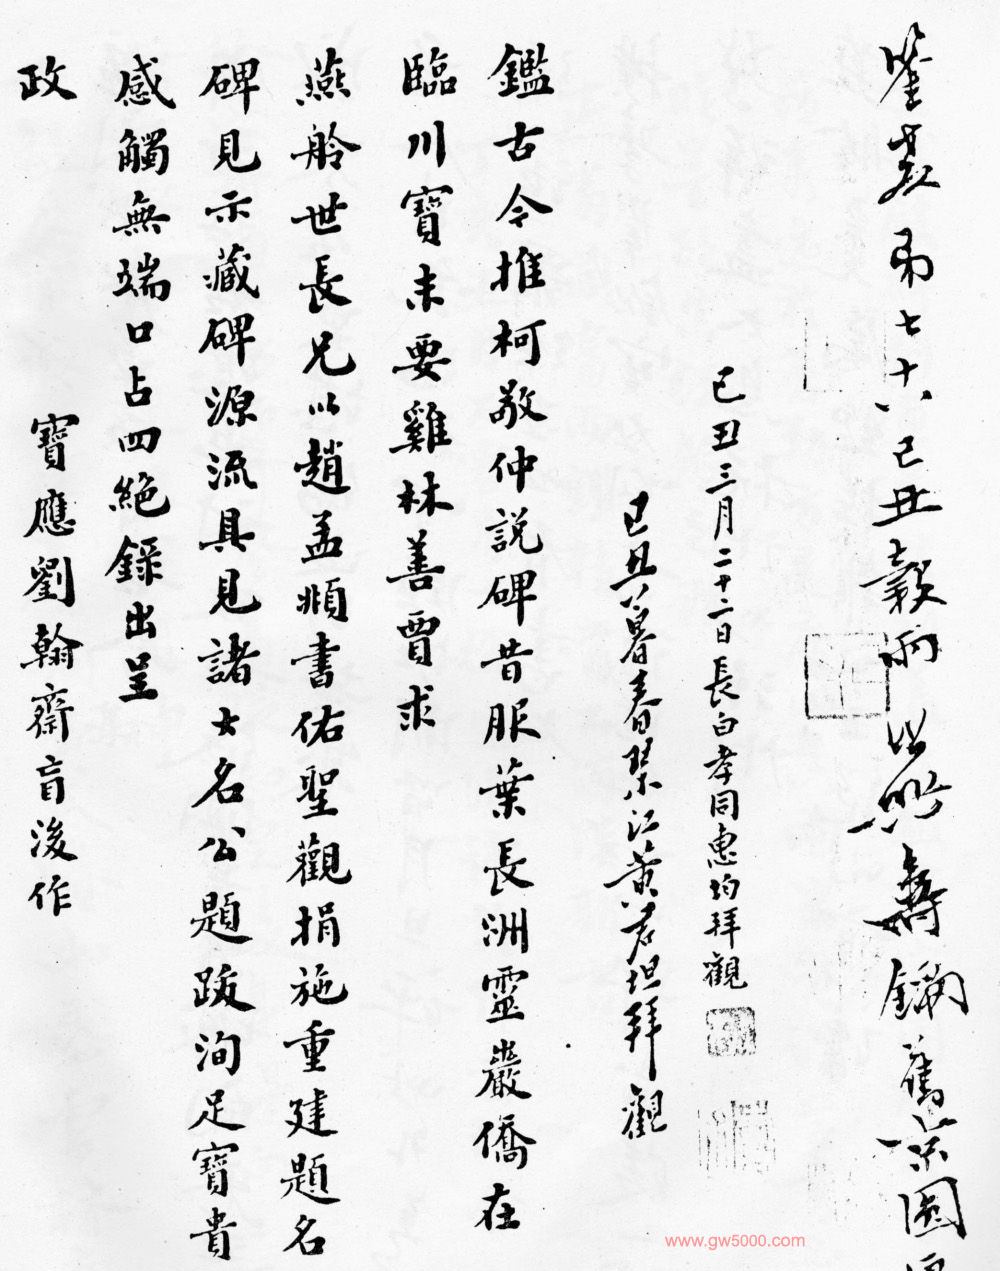 己丑三月二十二日長白孝同惠均拜觀
己丑暮春琴江黃君坦拜觀
鑑古今推柯敬仲說碑昔服葉長洲靈巖僑在
臨川寶未要雞林善賈求
燕舲世長兄以趙孟頫書佑聖觀捐施重建題名
碑見示藏碑源流具見諸大名公題跋洵足寶貴
感觸無端口占四絕錄出呈
政
寶應劉翰齋盲後作
www.gw5000.com